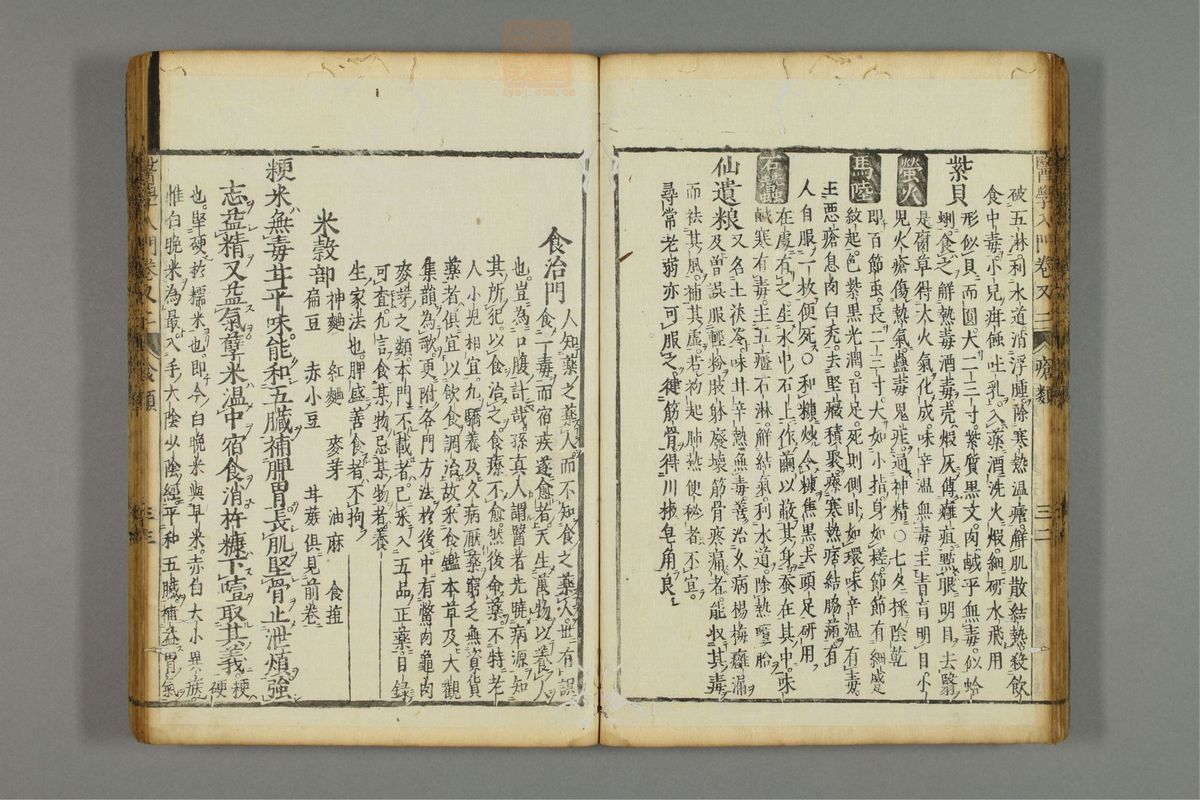 醫學入門卷又二 瘡類 三二
破五淋利水道消浮腫除寒熱溫瘧解肌散結熱殺飲
食中毒小兒疳蝕吐乳入藥酒洗火煆細研水飛用
紫貝
形似貝而圓大二三寸紫質黑文肉鹹平無毒似蛤
蜊食之解熱毒酒毒殼煆灰傅癰疽點眼明目去翳
螢火
是腐草得大火氣化成味辛溫無毒主青盲明目小
兒火瘡傷熱氣蠱毒鬼疰通神精〇七夕採陰乾
馬陸
即百節虫長二三寸大如小指身如槎節節有細蹙
紋起色紫黑光潤百足死則側臥如環味辛溫有毒
主惡瘡息肉白禿去堅癥積聚療寒熱痞結脇痛有
人自服一枚便死〇和糠炒令糠焦黑去頭足研用
石蠶
在處有之生水中石上作繭以蔽其身蚕在其中味
鹹寒有毒主五癃石淋解結氣利水道除熱墮胎
仙遺粮
又名土茯苓味甘辛熱無毒善治久病楊梅癰漏
及曾誤服輕粉肢躰廢壞筋骨疼痛者能收其毒
而祛其風補其虛若初起肺熱便秘者不宜
尋常老弱亦可服之健筋骨得川椒皂角良
食治門
人知藥之藥人而不知食之藥人世有誤
食一毒而宿疾遂愈者天生萬物以養人
也豈為口腹計哉孫真人謂醫者先曉病源知
其所犯以食治之食療不愈然後命藥不特老
人小児相宜凡驕養及久病厭藥窮乏無資貨
藥者俱宜以飲食調治故采食鑑本草及大觀
集韻為歌更附各門方法於後中有鱉肉龜肉
麥芽之類本門不載者已采入五品正藥目錄
可査凡言食某物忌某物者養
生家法也脾盛善食者不拘
米穀部
神麯 紅麯 麥芽 油麻 食
扁豆 赤小豆 俱見前卷
粳米無毒甘平味能和五臟補脾胃長肌堅骨止泄煩強
志益精又益氣蘗米溫中宿食消杵糠下噎取其義粳硬
也堅硬於糯米也即今白晚米與早米赤白大小異族
惟白晚米為最入手太陰少陰經平和五臟補益胃氣
醫學入門卷又二 食類 三三